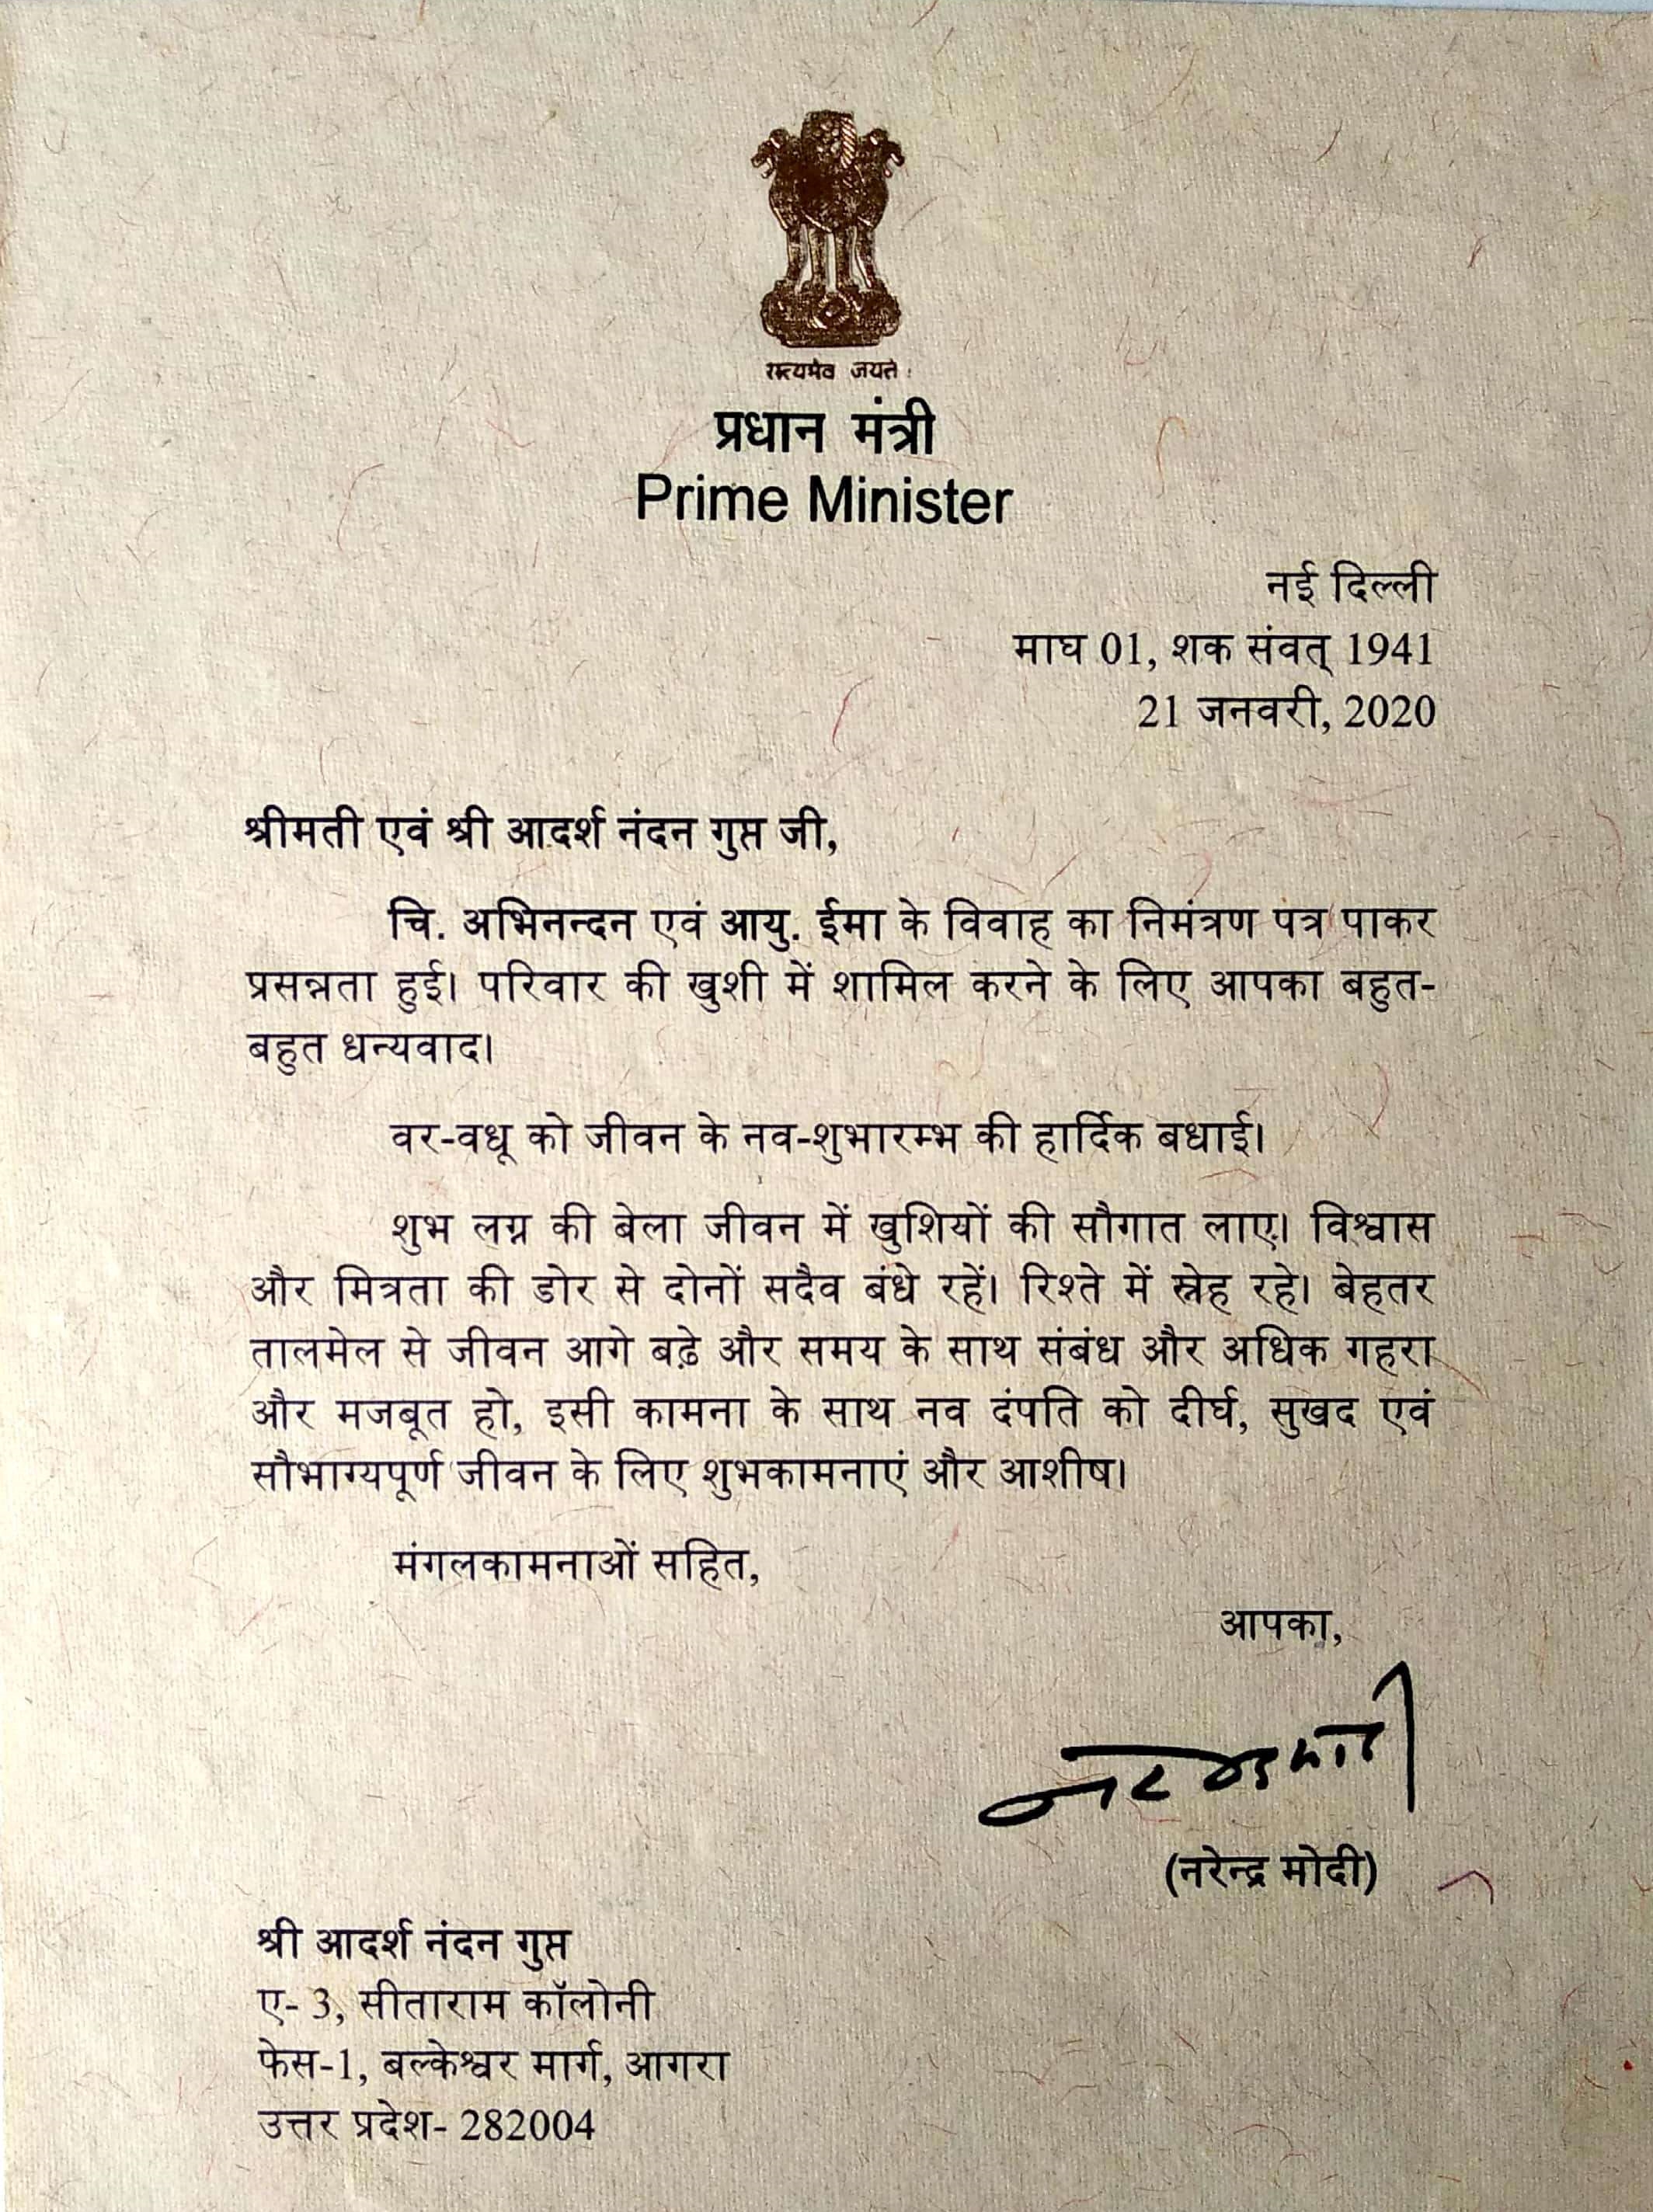 सत्यमेव जयते
प्रधान मंत्री
Prime Minister
नई दिल्ली
माघ 01, शक संवत् 1941
21 जनवरी, 2020
श्रीमती एवं श्री आदर्श नंदन गुप्त जी,
चि. अभिनन्दन एवं आयु. ईमा के विवाह का निमंत्रण पत्र पाकर
प्रसन्नता हुई। परिवार की खुशी में शामिल करने के लिए आपका बहुत-
बहुत धन्यवाद।
वर-वधू को जीवन के नव-शुभारम्भ की हार्दिक बधाई।
शुभ लग्न की बेला जीवन में खुशियों की सौगात लाए। विश्वास
और मित्रता की डोर से दोनों सदैव बंधे रहें। रिश्ते में स्नेह रहे। बेहतर
तालमेल से जीवन आगे बढ़े और समय के साथ संबंध और अधिक गहरा
और मजबूत हो, इसी कामना के साथ नव दंपति को दीर्घ, सुखद एवं
सौभाग्यपूर्ण जीवन के लिए शुभकामनाएं और आशीष।
मंगलकामनाओं सहित,
आपका,
(नरेन्द्र मोदी)
श्री आदर्श नंदन गुप्त
ए- 3, सीताराम कॉलोनी
फेस-1, बल्केश्वर मार्ग, आगरा
उत्तर प्रदेश- 282004